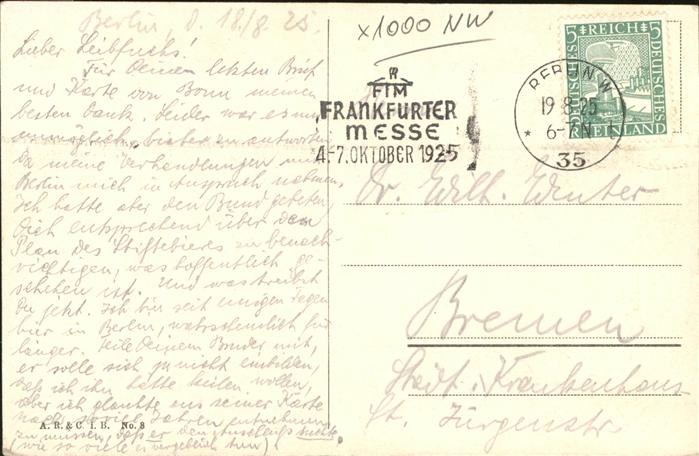 Berlin, d. 18/8. 25.
Lieber Leibfuchs!
Für Deinen letzten Brief
und Karte von Bonn meinen
besten Dank. Leider war es mir
unmöglich, bisher zu antworten,
da meine Verhandlungen mit
Berlin mich in Anspruch nahmen.
Ich hatte aber den Bund gebeten,
Dich entsprechend über den
Plan des Stiftebieres zu benach-
richtigen, was hoffentlich ge-
schehen ist. Und was treibst
Du jetzt. Ich bin seit einigen Tagen
hier in Berlin, wahrscheinlich für
länger. Teile Deinem Bruder mit,
er solle sich ja nicht einbilden,
daß ich ihn hätte keilen wollen,
aber ich glaubte aus seiner Karte
nach soviel Jahren entnehmen
zu müssen, daß er den Anschluß suchte,
(wie so viele vergeblich tun)
A. R. & C. i. B. No. 8
x1000 NW
FIM
FRANKFURTER
MESSE
4.-7. OKTOBER 1925
BERLIN W
19.8.25
* 6-7 N
35
5 REICH 5
DEUTSCHES
DEUTSCHES
RHEINLAND
Dr. Wilh. Winter
Bremen
Städt. Krankenhaus
St. Jürgenstr.